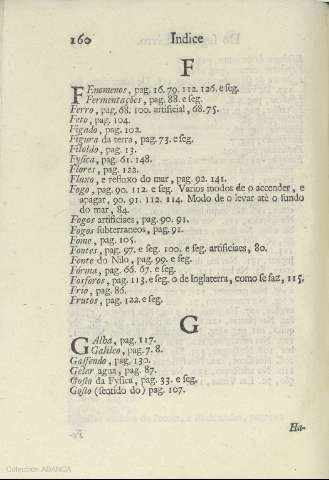 160 Indice
F
FEnomenos, pag. 16. 79. 112. 126. e seg.
Fermentações, pag. 88. e seg.
Ferro, pag. 68. 100. artificial, 68. 75.
Feto, pag. 104.
Figado, pag. 102.
Figura da terra, pag. 73. e seg.
Filolão, pag. 13.
Fysica, pag. 61. 148.
Flores, pag. 122.
Fluxo, e refluxo do mar, pag. 92. 141.
Fogo, pag. 90. 112. e seg. Varios modos de o accender, e
apagar, 90. 91. 112. 114. Modo de o levar até o fundo
do mar, 84.
Fogos artificiaes, pag. 90. 91.
Fogos subterraneos, pag. 91.
Fome, pag. 105.
Fontes, pag. 97. e seg. 100. e seg. artificiaes, 80.
Fonte do Nilo, pag. 99. e seg.
Fórma, pag. 66. 67. e seg.
Fosforos, pag. 113. e seg. o de Inglaterra, como se faz, 115.
Frio, pag. 86.
Frutos, pag. 122. e seg.
G
GAlba, pag. 117.
Galileo, pag. 7. 8.
Gassendo, pag. 130.
Gelar agua, pag. 87.
Gosto da Fysica, pag. 33. e seg.
Gosto (sentido do) pag. 107.
Ha-
Colección ABANCA